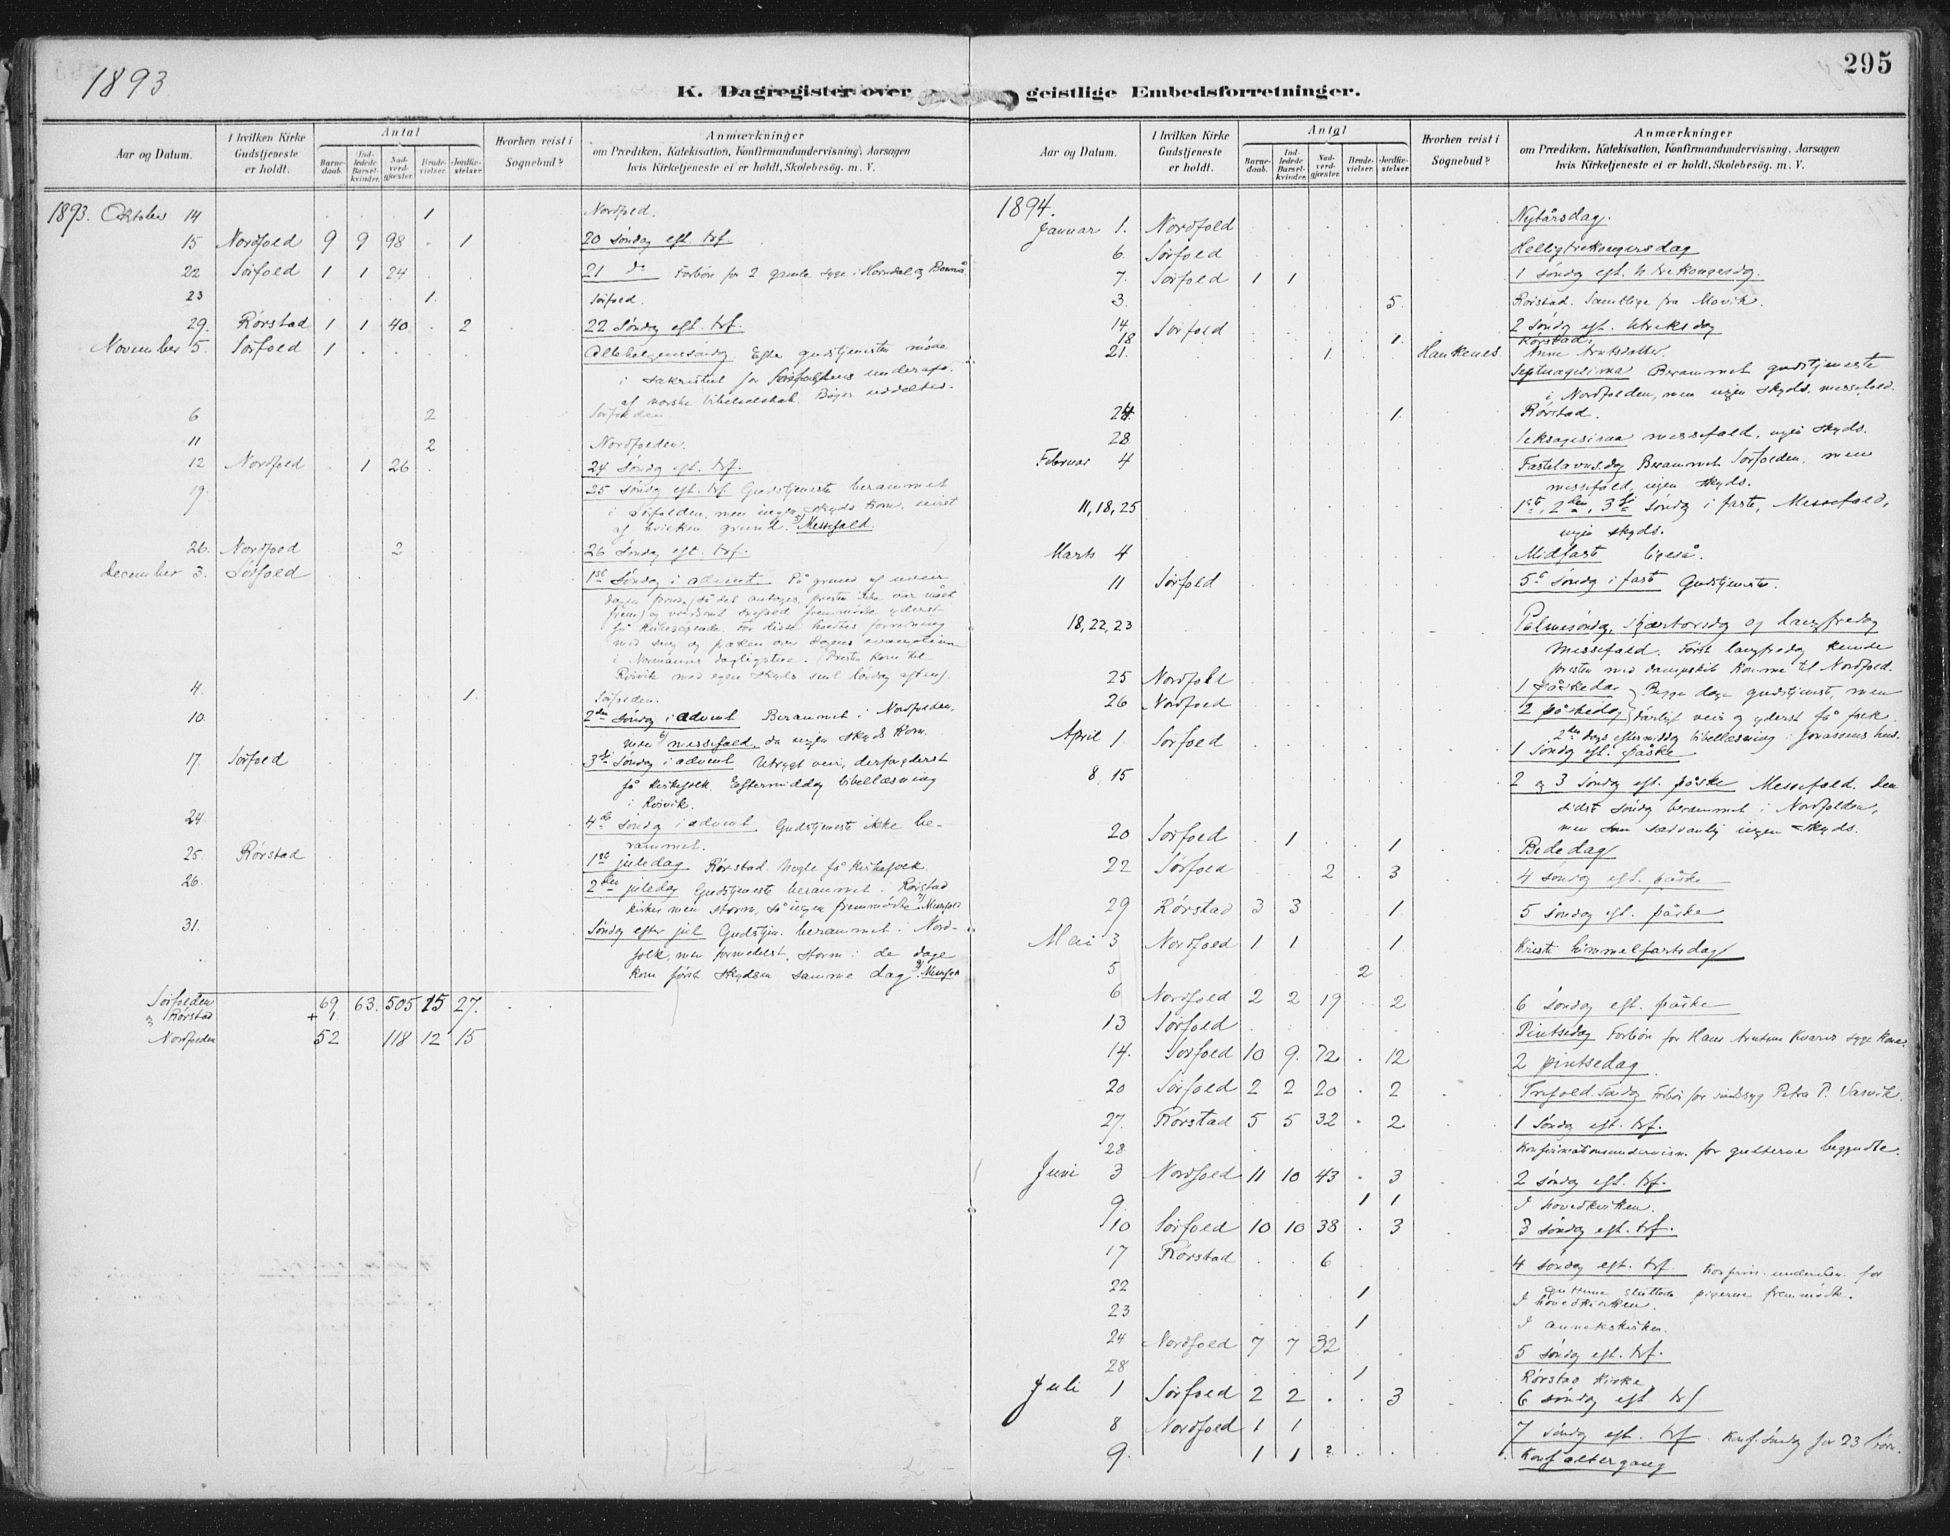 1893
295
K. Dagregister over geistlige Embedsforretninger.
Aar og Datum.
I hvilken Kirke Gudstjeneste er holdt.
Antal
Barnedaab.
Indledede Barselkvinder.
Nadverdgjæster.
Brudevielser.
Jordfæstelser.
Hvorhen reist i Sognebud?
Anmærkninger
om Prædiken, Katekisation, Konfirmandundervisning, Aarsagen
hvis Kirketjeneste ei er holdt, Skolebesøg. m. V.
1893. Oktober 14 1 Nordfold.
15 Nordfold 9 9 98 . 1 20 søndag eft. trf.
22 Sørfold 1 1 24 21 do Forbøn for 2 gamle syge i Horndal og
23 1. Sørfold.
29. Rørstad 1 1 40 . 2 22 Søndag eft. trf.
November 5. Sørfold 1 Allehelgenssøndag Efter gudstjenesten møde
i sakristiet for Sørfoldens underafd.
af norske bibelselskab. Bøger uddeltes.
6 2 Sørfolden.
11 2 Nordfolden.
12 Nordfold . 1 26 24 søndag eft. trf.
19. 25 søndag eft. trf Gudstjeneste berammet
i Sørfolden, men ingen skyds kom, uvist
af hvilken grund. Messefald.
26. Nordfold 2 26 søndag eft. trf.
December 3. Sørfold 1ste søndag i advent. På grund af
fremmødte yderst
få kirkesøgende. For disse holdtes forretning
med sang og præken over dagens evangelium
i Normanns dagligstue. (Presten kom til
Røsvik med egen skyds sent lørdag aften).
4. 1. Sørfolden.
10. 2den søndag i advent Berammet i Nordfolden,
men messefald, da ingen skyds kom.
17. Sørfold 3die søndag i advent Utrygt veir, derfor yderst
få kirkefolk. Eftermiddag bibellæsning
i Røsvik.
24. 4de søndag i advent Gudstjeneste ikke be-
rammet.
25. Rørstad 1ste juledag Rørstad. Nogle få kirkefolk.
26. 2den juledag Gudstjeneste berammet i Rørstad
kirke men storm, så ingen fremmødte
31. Søndag efter jul Gudstjen. berammet i Nord-
fold, men formedelst storm i de dage
kom først skydsen samme dag
Sørfolden 69 63. 505 15 27.
og Rørstad + 1.
Nordfolden 52 118 12 15
Aar og Datum.
I hvilken Kirke Gudstjeneste er holdt.
Antal
Barnedaab.
Indledede Barselkvinder.
Nadverdgjæster.
Brudevielser.
Jordfæstelser.
Hvorhen reist i Sognebud?
Anmærkninger
om Prædiken, Katekisation, Konfirmandundervisning, Aarsagen
hvis Kirketjeneste ei er holdt, Skolebesøg. m. V.
1894.
Januar 1. Nordfold Nytårsdag.
6. Sørfold Helligtrekongersdag
7. Sørfold 1 1 1 søndag eft. h trekongersdg.
3. 5. Rørstad. Samtlige fra Movik.
14. Sørfold 2 søndag eft.
18 1. Rørstad.
21. 1 Haukenes. Anne Arntsdatter.
Septuagesima Berammet gudstjeneste
i Nordfolden, men ingen skyds, messefald.
24. 1. Rørstad.
28 Seksagesima messefald, ingen skyds.
Februar 4 Fastelavnsdag Berammet Sørfolden, men
messefald, ingen skyds.
11, 18, 25 1ste, 2den, 3die søndag i faste, Messefald,
ingen skyds.
Marts 4 Midfaste ligeså.
11 Sørfold 5te søndag i fast Gudstjeneste.
18, 22, 23 Palmesøndag, Skjærtorsdag og langfredag
Messefald. Først langfredag kunde
presten med dampskib komme til Nordfold.
25 Nordfold 1 påskedag Begge dage gudstjenest, men
26 Nordfold 2 påskedag dårligt veir og yderst få folk.
2den dags eftermiddag bibellæsning i Jonassens hus.
April 1. Sørfold 1 Søndag eft. påske
8, 15 2 og 3 søndag eft. påske Messefald. Den
sidste søndag berammet i Nordfolden,
men som sædvanlig ingen skyds.
20 Sørfold . 1 . . 1 Bededag
22 Sørfold . . 2 . 3 4 søndag eft. påske
29 Rørstad 3 3 . . 1. 5 søndag eft. påske
Mai 3 Nordfold 1 1 . . 1 Kristi himmelfartsdag
5 2
6 Nordfold 2 2 19 . 2 6 søndag eft. påske
13 Sørfold Pintsedag Forbøn for Hans Arntsen Kvarvs syge kone.
14. Sørfold 10 9. 72 . 12 2 pintsedag
20 Sørfold 2 2 20 . 2 Trefold. søndag Forbøn for sindssyg Petra P.
27. Rørstad 5 5 32 . 2 1 søndag eft. trf.
28 Konfirmationsundervisn. for gutterne begyndte.
Juni 3 Nordfold 11 10 43 . 3 2 søndag eft. trf.
9. 1 1 I hovedkirken.
10 Sørfold 10 10 38 . 3 3 søndag eft. trf.
17 Rørstad . . 6 4 søndag eft. trf. Konfirm. undervisn. for
gutterne sluttede, pigerne fremmødte.
22 1 I hovedkirken.
23 1 I annekskirken.
24 Nordfold 7 7 32 5 søndag eft. trf.
28 1 Rørstad kirke
Juli 1 Sørfold 2 2 . . 3 6 søndag eft trf
8 Nordfold 1 1 7 søndag eft. trf. Konf. søndag for 23 børn.
9. 1 1 2 Konf altergang